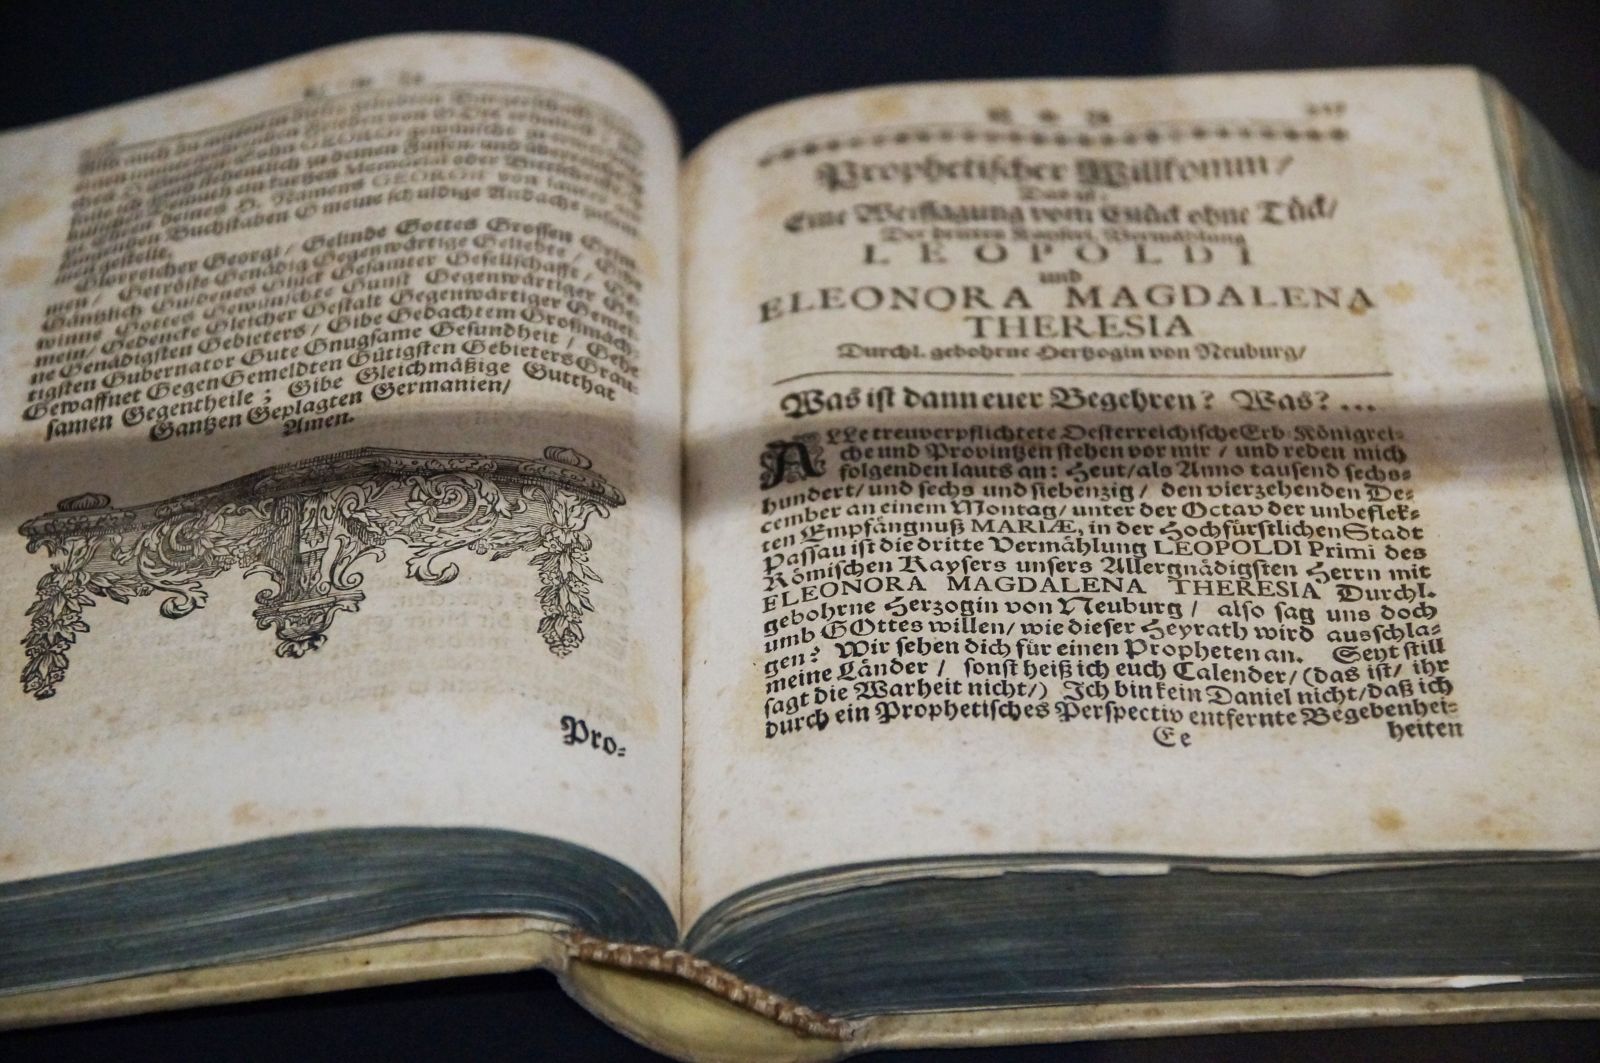 einen immerwährenden Frieden von GOtt erhalten /
zu Ehren deines H. Namens GEORGII von lauter
genden Buchstaben G meine schuldige Andacht
mengestelle.
Glorreicher Georgi / Gelinde Gottes Grossen Grim-
men / Getröste Genädig Gegenwärtige Geliebte /
Gäntzlich Guldenes Glück Gesamter Gesellschafft / Ge-
winne Gottes Gewünschte Gunst Gegenwärtiger Ge-
mein / Gedencke Gleicher Gestalt Gegenwärtiger Gemei-
ne Genädigsten Gebieters / Gibe Gedachtem Großmäch-
tigsten Gubernator Gute Gnugsame Gesundheit / Gehe
Gewaffnet Gegen Gemeldten Gütigsten Gebieters Grau-
samen Gegentheile ; Gibe Gleichmäßige Gutthat
Gantzen Geplagten Germanien /
Amen.
Pro-
Prophetischer Willkomm /
Das ist:
Eine Weissagung vom Glück ohne Tück /
Der dritten Kayserl. Vermählung
LEOPOLDI
und
ELEONORA MAGDALENA
THERESIA
Durchl. gebohrne Hertzogin von Neuburg /
Was ist dann euer Begehren? Was? ...
ALLe treuverpflichtete Oesterreichische Erb-Königrei-
che und Provintzen stehen vor mir / und reden mich
folgenden lauts an: Heut / als Anno tausend sechs-
hundert / und sechs und siebenzig / den vierzehenden De-
cember an einem Montag / unter der Octav der unbeflek-
ten Empfängnuß MARIÆ, in der Hochfürstlichen Stadt
Passau ist die dritte Vermählung LEOPOLDI Primi des
Römischen Kaysers unsers Allergnädigsten Herrn mit
ELEONORA MAGDALENA THERESIA Durchl.
gebohrne Herzogin von Neuburg / also sag uns doch
umb GOttes willen / wie dieser Heyrath wird ausschla-
gen? Wir sehen dich für einen Propheten an. Seyt still
meine Länder / sonst heiß ich euch Calender / (das ist / ihr
sagt die Warheit nicht /) Ich bin kein Daniel nicht / daß ich
durch ein Prophetisches Perspectiv entfernte Begebenhei-
Ee heiten